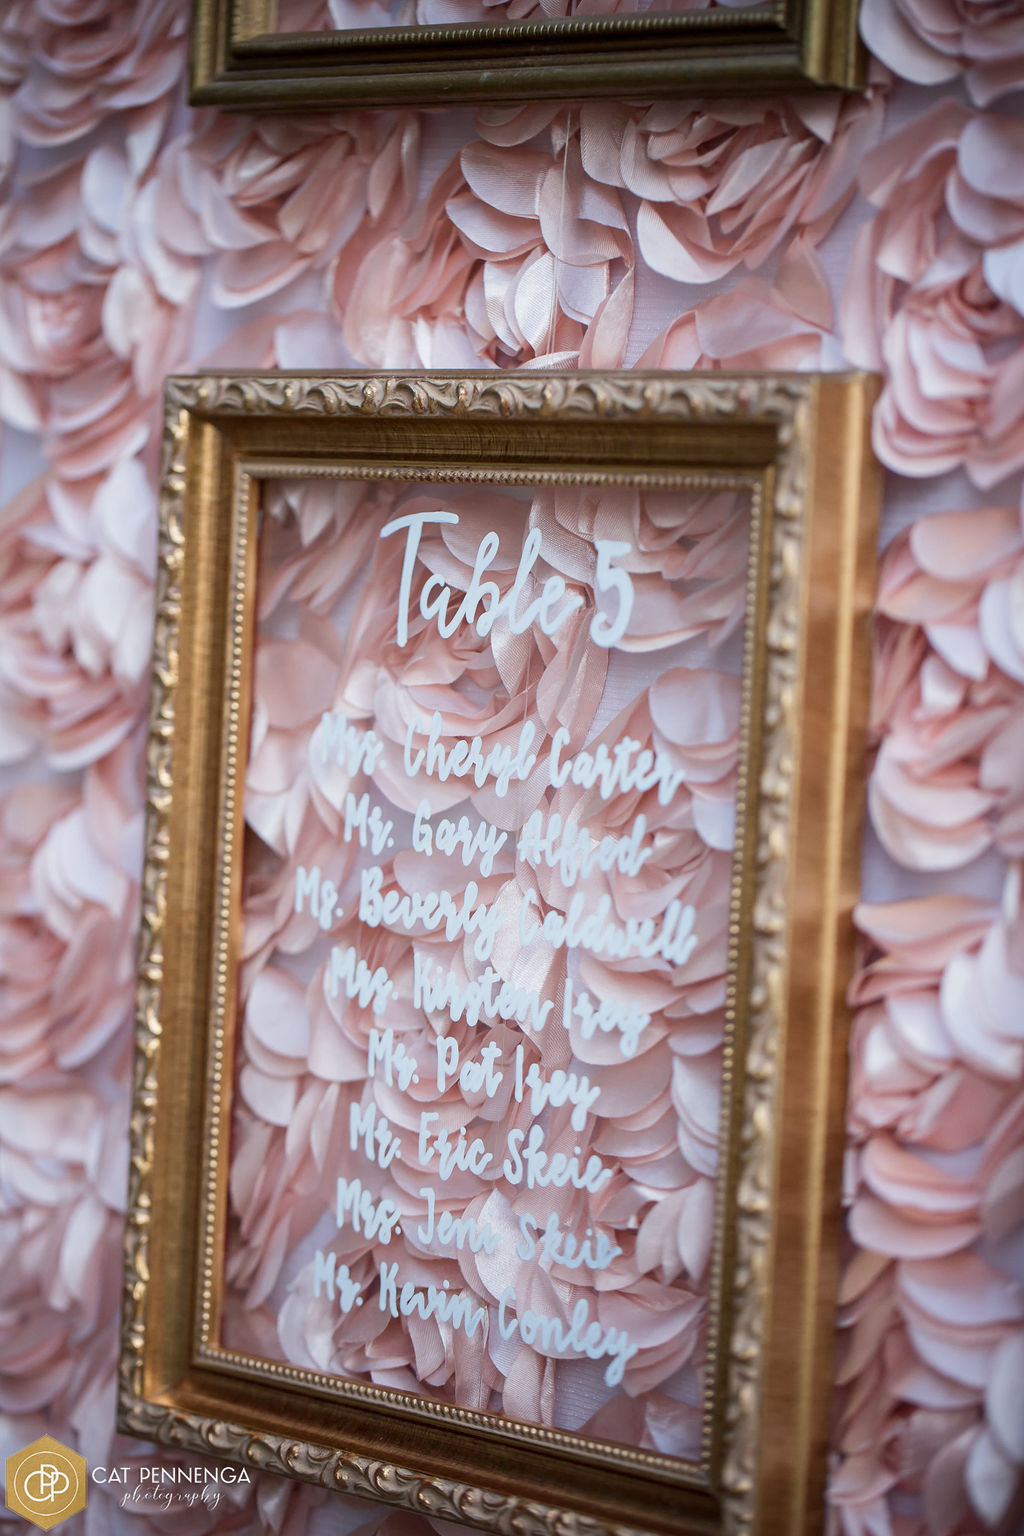 Table 5
Mrs. Cheryl Carter
Mr. Gary Alfred
Ms. Beverly Caldwell
Mrs. Kirsten Irey
Mr. Pat Irey
Mr. Eric Skeie
Mrs. Jeni Skeie
Mr. Kevin Conley
CPP
CAT PENNENGA
photography